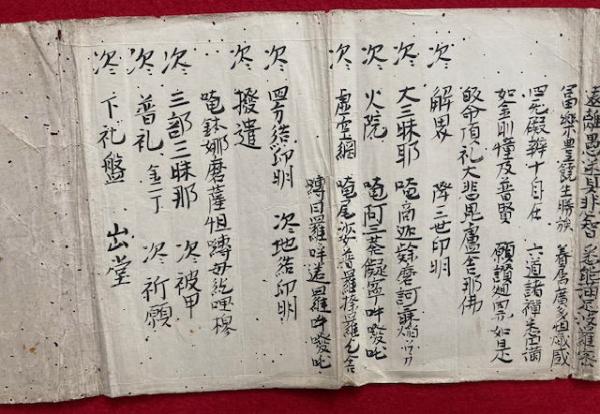 遠離愚迷具悲智 悉能滿足波羅蜜
富樂豊饒生勝族 眷属廣多恒熾盛
四无礙辯十自在 六通諸禅悉圓満
如金剛幢及普賢 願讃廻向亦如是
皈命頂礼大悲毘盧舎那佛
次 解界 降三世印明
次 大三昧耶 唵商迦㘑磨訶
次 火院 唵阿三莽儗寧吽發吒
次 虚空網 唵尾娑普羅捺羅乞叉
嚩日羅 羅吽發吒
次 四方結印明 次地結印明
次 撥遣
唵鉢娜磨薩怛嚩母 穆
次 三部三昧耶 次被甲
次 普礼 金一丁 次祈願
次 下礼盤 出堂